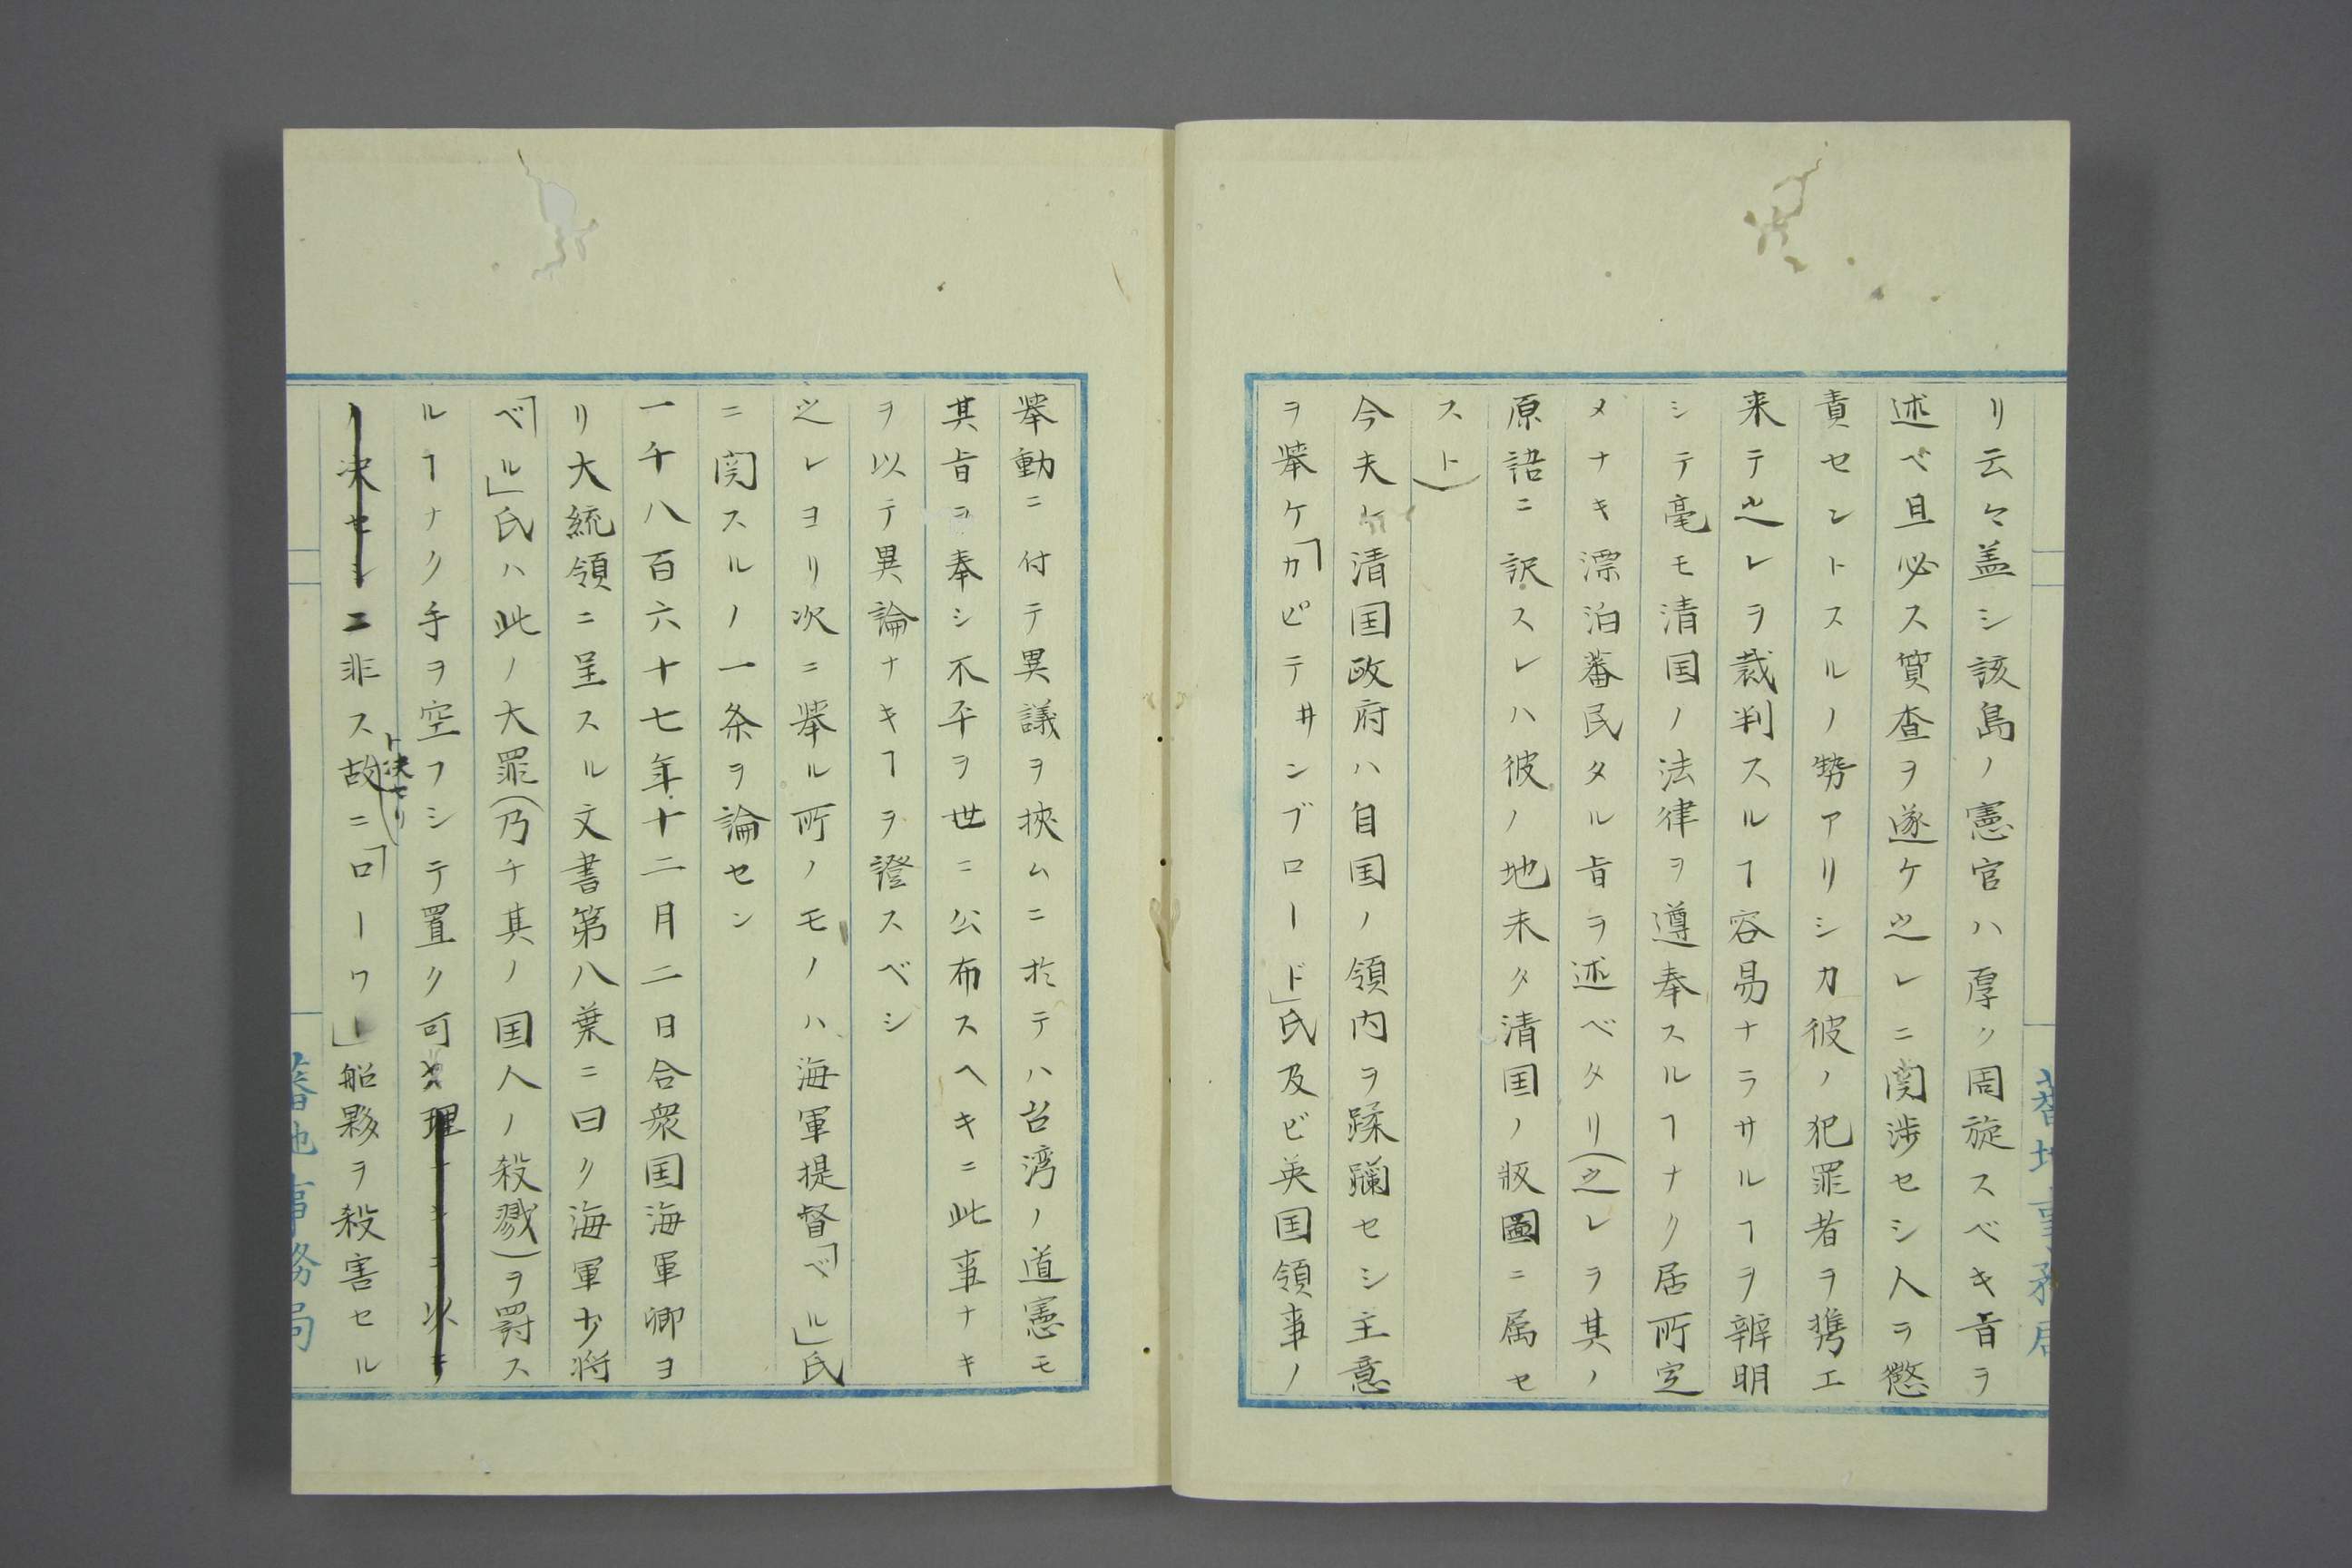 リ云々盖シ該島ノ憲官ハ厚ク周旋スベキ旨ヲ
述ベ且必ス質査ヲ遂ケ之レニ関渉セシ人ヲ懲
責セントスルノ勢アリシカ彼ノ犯罪者ヲ携エ
来テ之レヲ裁判スルヿ容易ナラサルヿヲ辨明
シテ毫モ清国ノ法律ヲ遵奉スルヿナク居所定
メナキ漂泊蕃民タル旨ヲ述ベタリ(之レヲ其ノ
原語ニ訳スレハ彼ノ地未タ清国ノ版圖ニ属セ
スト)
今夫ケ清国政府ハ自国ノ領内ヲ蹂躙セシ主意
ヲ挙ケ「カピテサンブロード」氏及ビ英国領事ノ
挙動ニ付テ異議ヲ挾ムニ於テハ台湾ノ道憲モ
其旨ヲ奉シ不平ヲ世ニ公布スヘキニ此事ナキ
ヲ以テ異論ナキヿヲ證スベシ
之レヨリ次ニ挙ル所ノモノハ海軍提督「ベル」氏
ニ関スルノ一条ヲ論セン
一千八百六十七年十二月二日合衆国海軍卿ヨ
リ大統領ニ呈スル文書第八葉ニ曰ク海軍少将
「ベル」氏ハ此ノ大罪(乃チ其ノ国人ノ殺戮)ヲ罰ス
ルヿナク手ヲ空フシテ置ク可
ト決セリ
ニ非ス故ニ「ローワル」船夥ヲ殺害セル
蕃地事務局
蕃地事務局